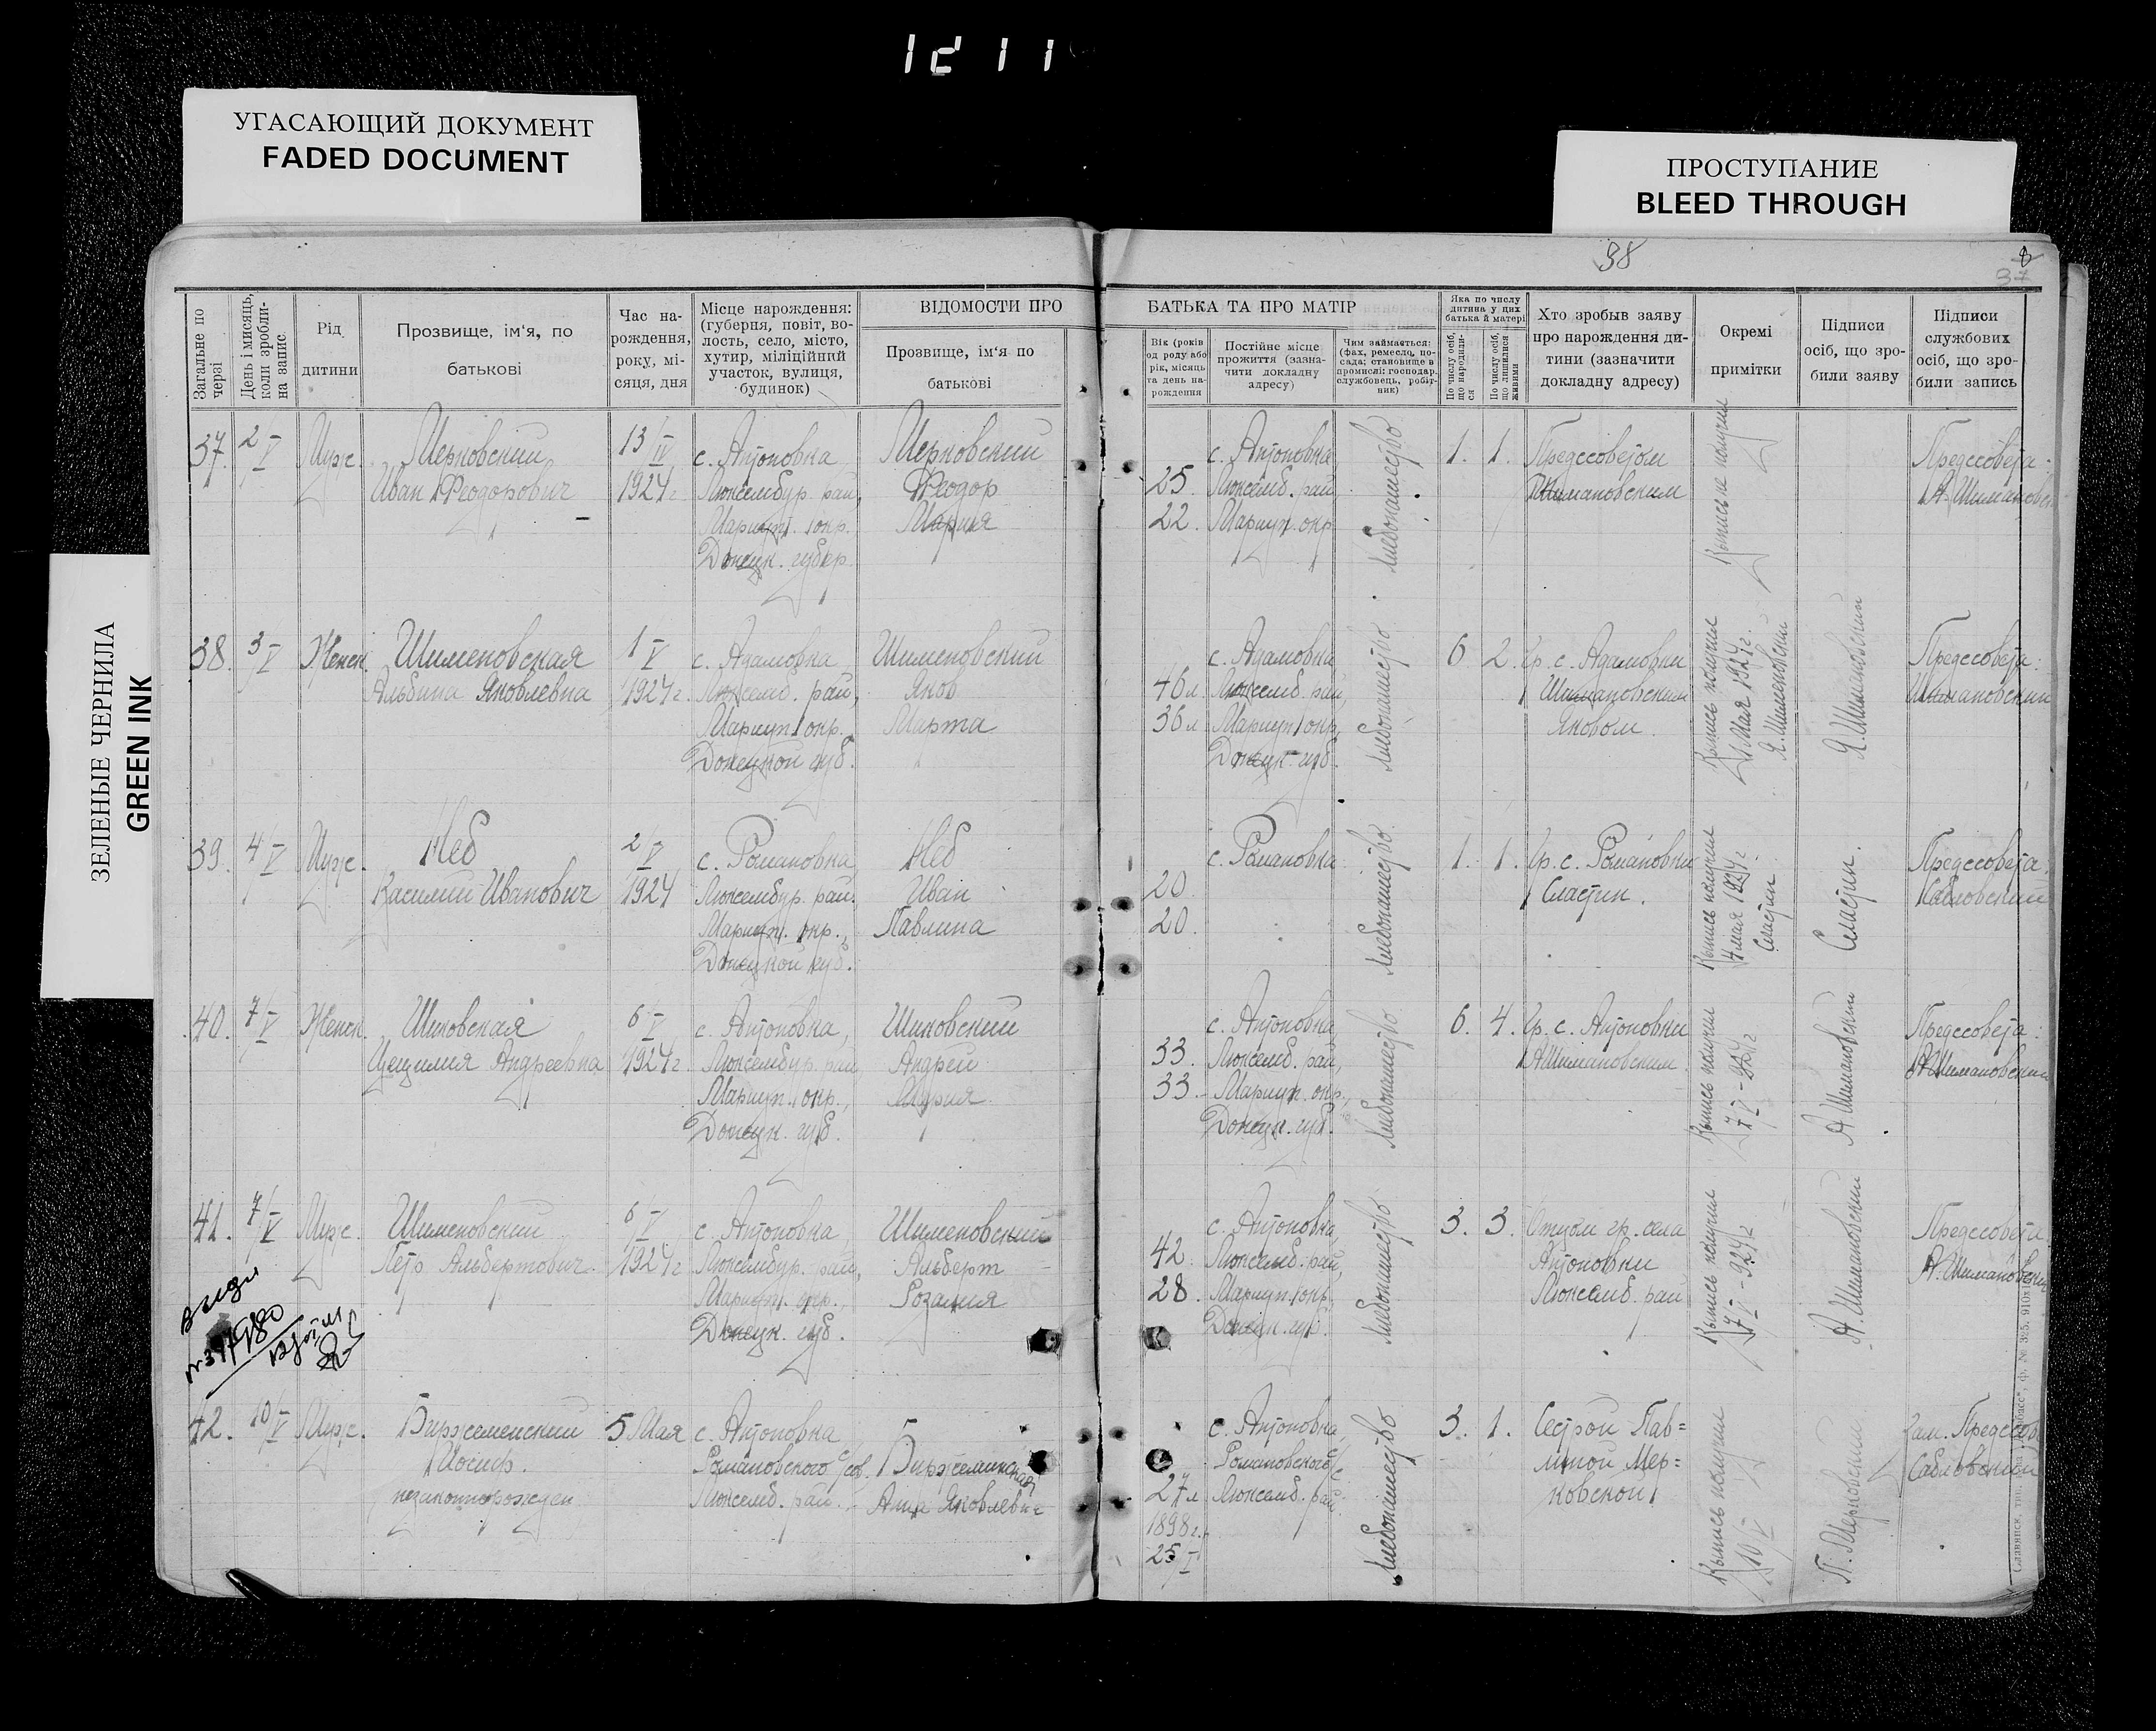 1211
УГАСАЮЩИЙ ДОКУМЕНТ
FADED DOCUMENT
ПРОСТУПАНИЕ
BLEED THROUGH
ЗЕЛЕНЫЕ ЧЕРНИЛА
GREEN INK
38
8
37
Загальне по черзі
День і мисяць, коли зробли- на запис.
Рід
дитини
Прозвище, ім‘я, по
батькові
Час на-
рождення,
року, мі-
сяця, дня
Місце нарождення:
(губерня, повіт, во-
лость, село, місто,
хутир, міліційний
участок, вулиця,
будинок)
ВІДОМОСТИ ПРО
Прозвище, ім‘я по
батькові
БАТЬКА ТА ПРО МАТІР
Вік (років
од роду або
рік, місяць
та день на-
рождення
Постійне місце
прожиття (зазна-
чити докладну
адресу)
Чим займається:
(фах, ремесло, по-
сада; становище в
промислі: господар,
службовець, робіт-
ник)
Яка по числу
дитина у цих
батька й матері
По числу осіб, що народили- ся
По числу осіб, що лишилися живими
Хто зробыв заяву
про нарождення ди-
тини (зазначити
докладну адресу)
Окремі
примітки
Підписи
осіб, що зро-
били заяву
Підписи
службових
осіб, що зро-
били запись
37.
2/V
Муж.
Мерковский
Иван Феодорович
13/IV
1924 г
с. Антоновка,
Люксембур. рай,
Мариуп. окр.
Донецк. губер.
Мерковский
Феодор
Мария
25.
22.
с. Антоновка,
Люксемб. рай
Мариуп. окр
Хлебопашество
1.
1.
Предссоветом
Шимановским
Выпись получил
Предссовета:
А. Шимановск
38.
3/V
Женск.
Шименовская
Альбина Яковлевна
1/V
1924 г.
с. Адамовка,
Люксемб. рай,
Мариуп. окр.
Донецкой губ.
Шименовский
Яков
Марта
46 л
36 л
с. Адамовка,
Люксемб. рай,
Мариуп. окр,
Донецк. губ.
Хлебопашество
6
2.
Гр. с. Адамовки
Шимановским
Яковом.
Выпись получил
4 Мая 1924 г.
Я. Шименовский
Я. Шимановский
Предссовета:
Шимановский
39.
4/V
Муж.
Неб
Василий Иванович
2/V
1924
с. Романовка
Люксембур. рай.
Мариуп. окр.,
Донецкой губ.
Неб
Иван
Павлина
20.
20.
с. Романовка
Хлебопашество
1.
1.
Гр. с. Романовки
Сластин.
Выпись получил
4 мая 1924 г.
Сластин
Сластин.
Предссовета:
Сабловский
40.
7/V
Женск.
Шиковская
Цецилия Андреевна
6/V
1924 г.
с. Антоновка,
Люксембур. рай
Мариуп. окр.,
Донецк. губ.
Шиковский
Андрей
Мария
33.
33.
с. Антоновка,
Люксемб. рай,
Мариуп. окр.,
Донецк. губ.
Хлебопашество
6.
4.
Гр. с. Антоновки
А Шимановским.
Выпись получил
7/V - 924 г
А Шимановский
Предссовета:
А Шимановский
41.
7/V
Муж.
Шименовский
Петр Альбертович.
6/V
1924 г
с. Антоновка,
Люксембур. рай,
Мариуп. окр.,
Донецк. губ.
Шименовский
Альберт
Розалия
42.
28.
с. Антоновка,
Люксемб. рай,
Мариуп. окр,
Донецк. губ.
Хлебопашество
3.
3.
Отцом гр. села
Антоновки
Люксемб. рай
Выпись получил
7/V - 924 г
А. Шимановский
Предссовета
А. Шимановский
42.
10/V
Муж.
Биржеменский
Иосиф.
незаконнорожден
5 Мая
с. Антоновка,
Романовского с/сов.
Люксемб. рай.
Биржеминская
Анна Яковлевна
27 л
1898 г.
25/I
с. Антоновка,
Романовского с/с
Люксемб. рай.
Хлебопашество
3.
1.
Сестрой Пав=
линой Мер=
ковской
Выпись получил
10/V
П. Мерковский
Зам. Предссов
Сабловский